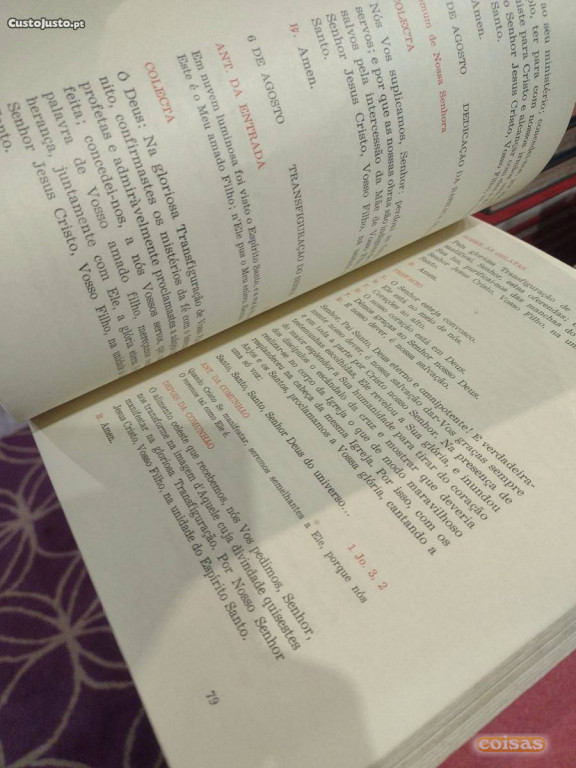 CustoJusto.pt
ao seu ministério;
ter para com
para Cristo e alcançar
Senhor Jesus Cristo,
Santo.
DE AGOSTO DEDICAÇÃO DA
omum de Nossa Senhora
COLECTA
Nós Vos suplicamos, Senhor:
servos; e por que as nossas obras não
salvos pela intercessão da Mãe de
Senhor Jesus Cristo, Vosso Filho,
Santo.
℟. Amen.
6 DE AGOSTO TRANSFIGURAÇÃO DO
ANT. DA ENTRADA
Em nuvem luminosa foi visto o Espírito Santo,
Este é o Meu amado Filho; n'Ele pus o Meu
COLECTA
Ó Deus: Na gloriosa Transfiguração de
nito, confirmastes os mistérios da fé com o
profetas e admiràvelmente proclamastes a
feita; concedei-nos, a nós Vossos servos,
palavra de Vosso amado filho,
herança, juntamente com Ele, a glória
Senhor Jesus Cristo, Vosso Filho, na unidade
Santo.
Pela gloriosa Transfiguração de
Senhor, estas
Sua luz purificai-nos das manchas do
Jesus Cristo, Vosso Filho, na
Amen.
PREFÁCIO
O Senhor esteja convosco.
Ele está no meio de nós.
Corações ao alto.
O nosso coração está em Deus.
Dêmos graças ao Senhor nosso Deus.
É nosso dever, é nossa salvação.
Senhor, Pai Santo, Deus eterno e omnipotente! É verdadeira-
mente nosso dever, é nossa salvação dar-Vos graças sempre
e em toda a parte por Cristo nosso Senhor. Na presença de
testemunhas escolhidas, Ele revelou a Sua glória, e inundou
do maior esplendor a Sua humanidade para tirar do coração
dos discípulos o escândalo da cruz e mostrar que deveria
realizar-se no corpo da Igreja o que de modo maravilhoso
resplandeceu na cabeça da mesma Igreja. Por isso, com os
Anjos e os Santos, proclamamos a Vossa glória, cantando a
uma só voz:
Santo, Santo, Santo, Senhor Deus do universo...
ANT. DA COMUNHÃO 1 Jo. 3, 2
Quando Cristo Se manifestar, seremos semelhantes a Ele, porque nós
O veremos tal como Ele é.
DEPOIS DA COMUNHÃO
O alimento celeste que recebemos, nós Vos pedimos, Senhor,
nos transforme na imagem d'Aquele cuja divindade quisestes
manifestar na gloriosa Transfiguração. Por Nosso Senhor
Jesus Cristo, Vosso Filho, na unidade do Espírito Santo.
℟. Amen.
79
coisas